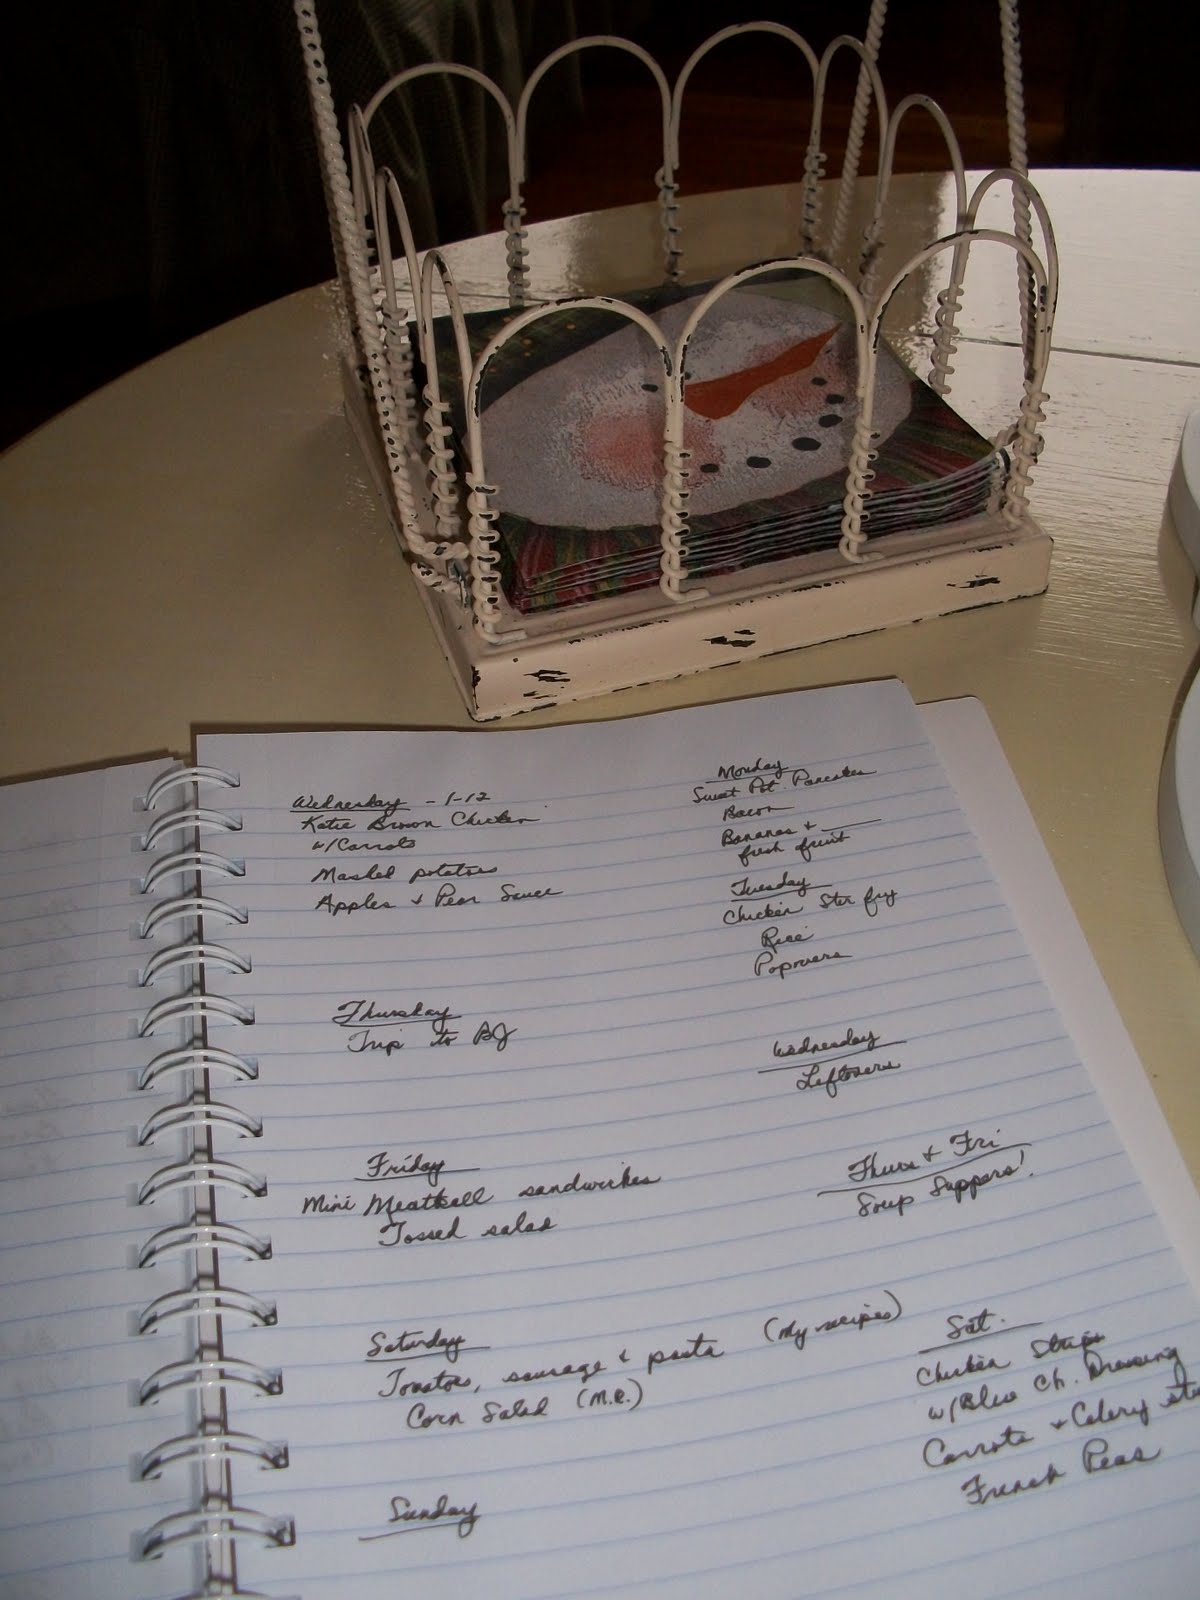 Wednesday - 1-12
Katie Brown Chicken
w/Carrots
Mashed potatoes
Apples + Pear Sauce
Thursday
Trip to BJ
Friday
Mini Meatball sandwiches
Tossed salad
Saturday
Tomatoes, sausage + pasta (My recipes)
Corn Salad (M.R.)
Sunday
Monday
Sweet Pot. Pancakes
Bacon
Bananas +
fresh fruit
Tuesday
Chicken Stir fry
Rice
Popovers
Wednesday
Leftovers
Thurs + Fri
Soup Suppers!
Sat.
Chicken Strips
w/Bleu Ch. Dressing
Carrots + Celery
French Peas